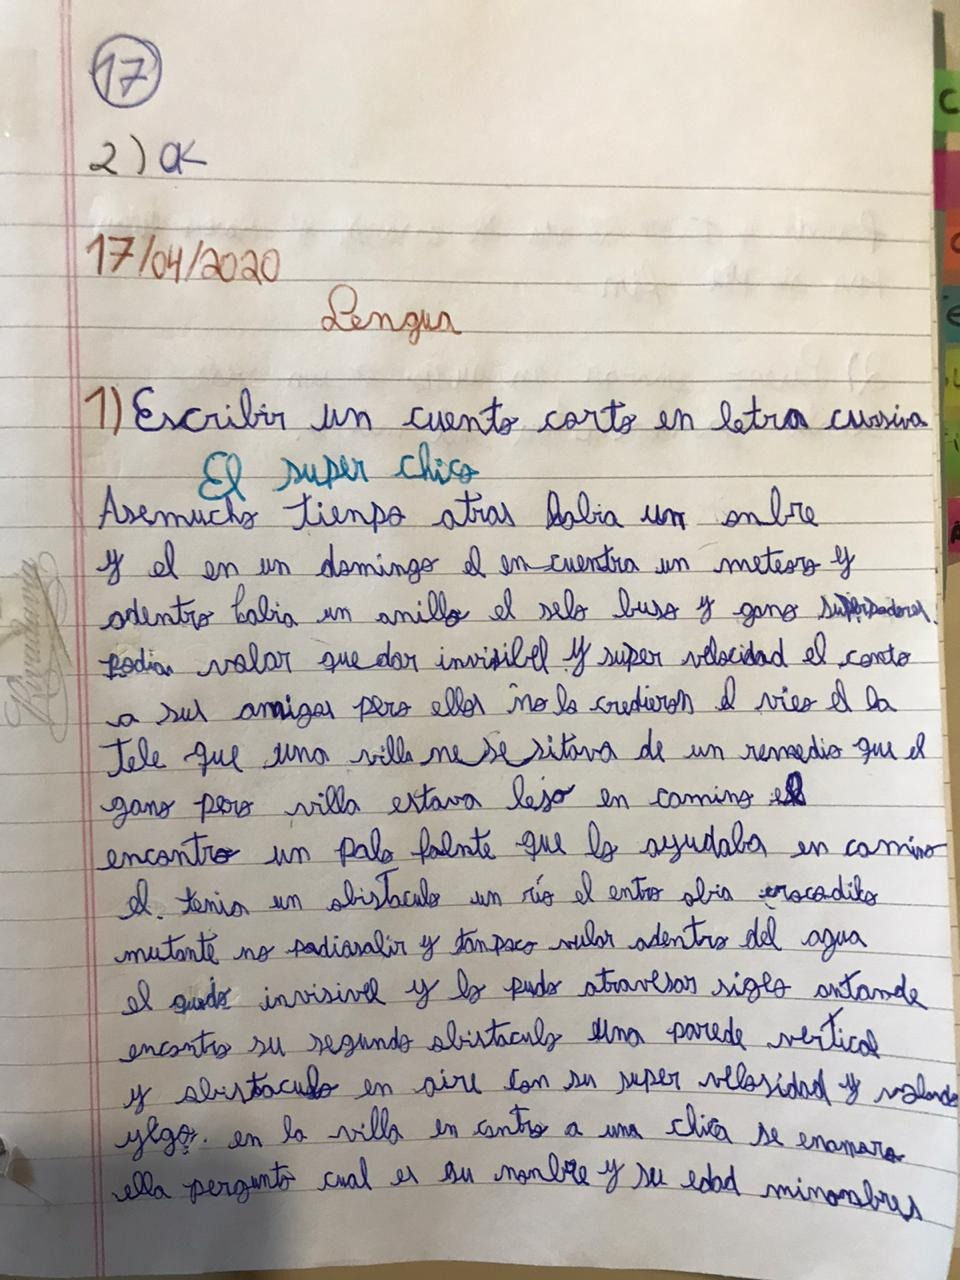 17
2) OK
17/04/2020
Lengua
1) Escribir un cuento corto en letra cursiva
El super chico
Asemucho tienpo atras habia un onbre
y el en un domingo el en cuentra un meteoro y
adentro habia un anillo el selo buso y gano superpoderes.
podia volar que dar invisibel y super velocidad el conto
a sus amigos pero ellos no lo credieron el vieo el la
tele que una villa ne se sitava de un remedio que el
gano pero villa estava leso en camino el
encontro un palo que lo ayudaba en camino
el tenia un obistaculo un río el entro abia crocodilo
mutante no podiasalir y tanpoco volar adentro del agua
el quedo invisivel y lo pudo atravesar siglo antande
encontro su segundo obistaculo una parede vertical
y obistaculo en aire con su super velosidad y volando
ylgo. en la villa en contro a una chica se enamoro
ella pergunto cual es su nombre y su edad minonbres